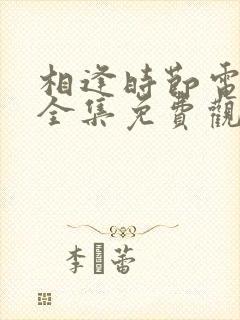 相逢時節電
全集免費觀
李 蕾